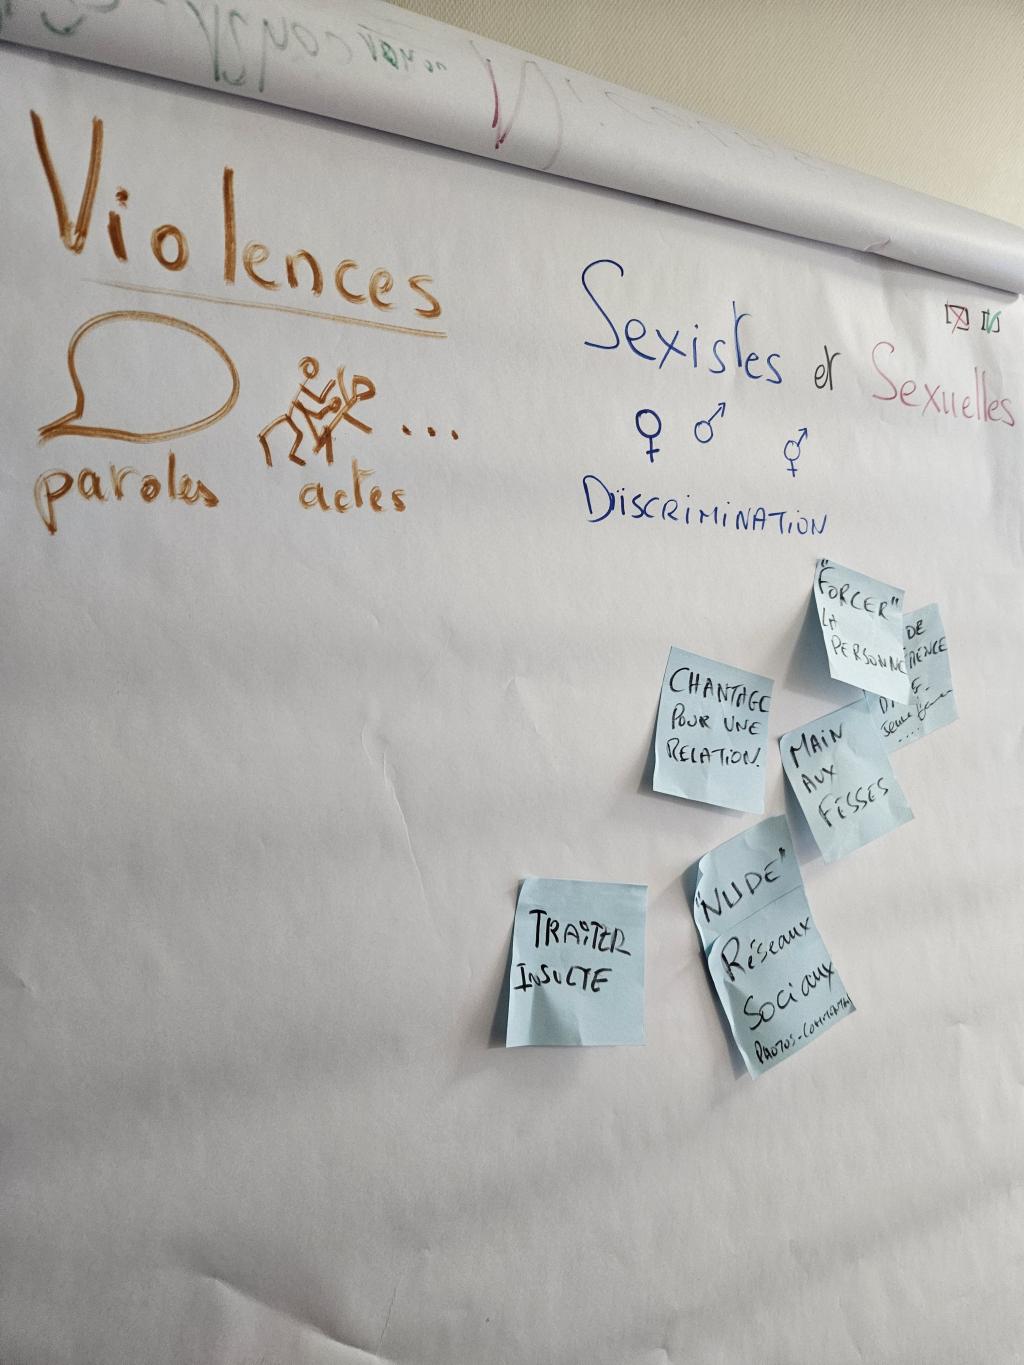 Violences
paroles
actes
...
Sexistes et Sexuelles
♀ ♂ ⚥
DISCRIMINATION
"FORCER"
LA
PERSONNE
DE
CHANTAGE
POUR UNE
RELATION.
MAIN
AUX
FESSES
"NUDE"
Réseaux
Sociaux
PHOTOS-COMMENTAI
TRAITER
INSULTE